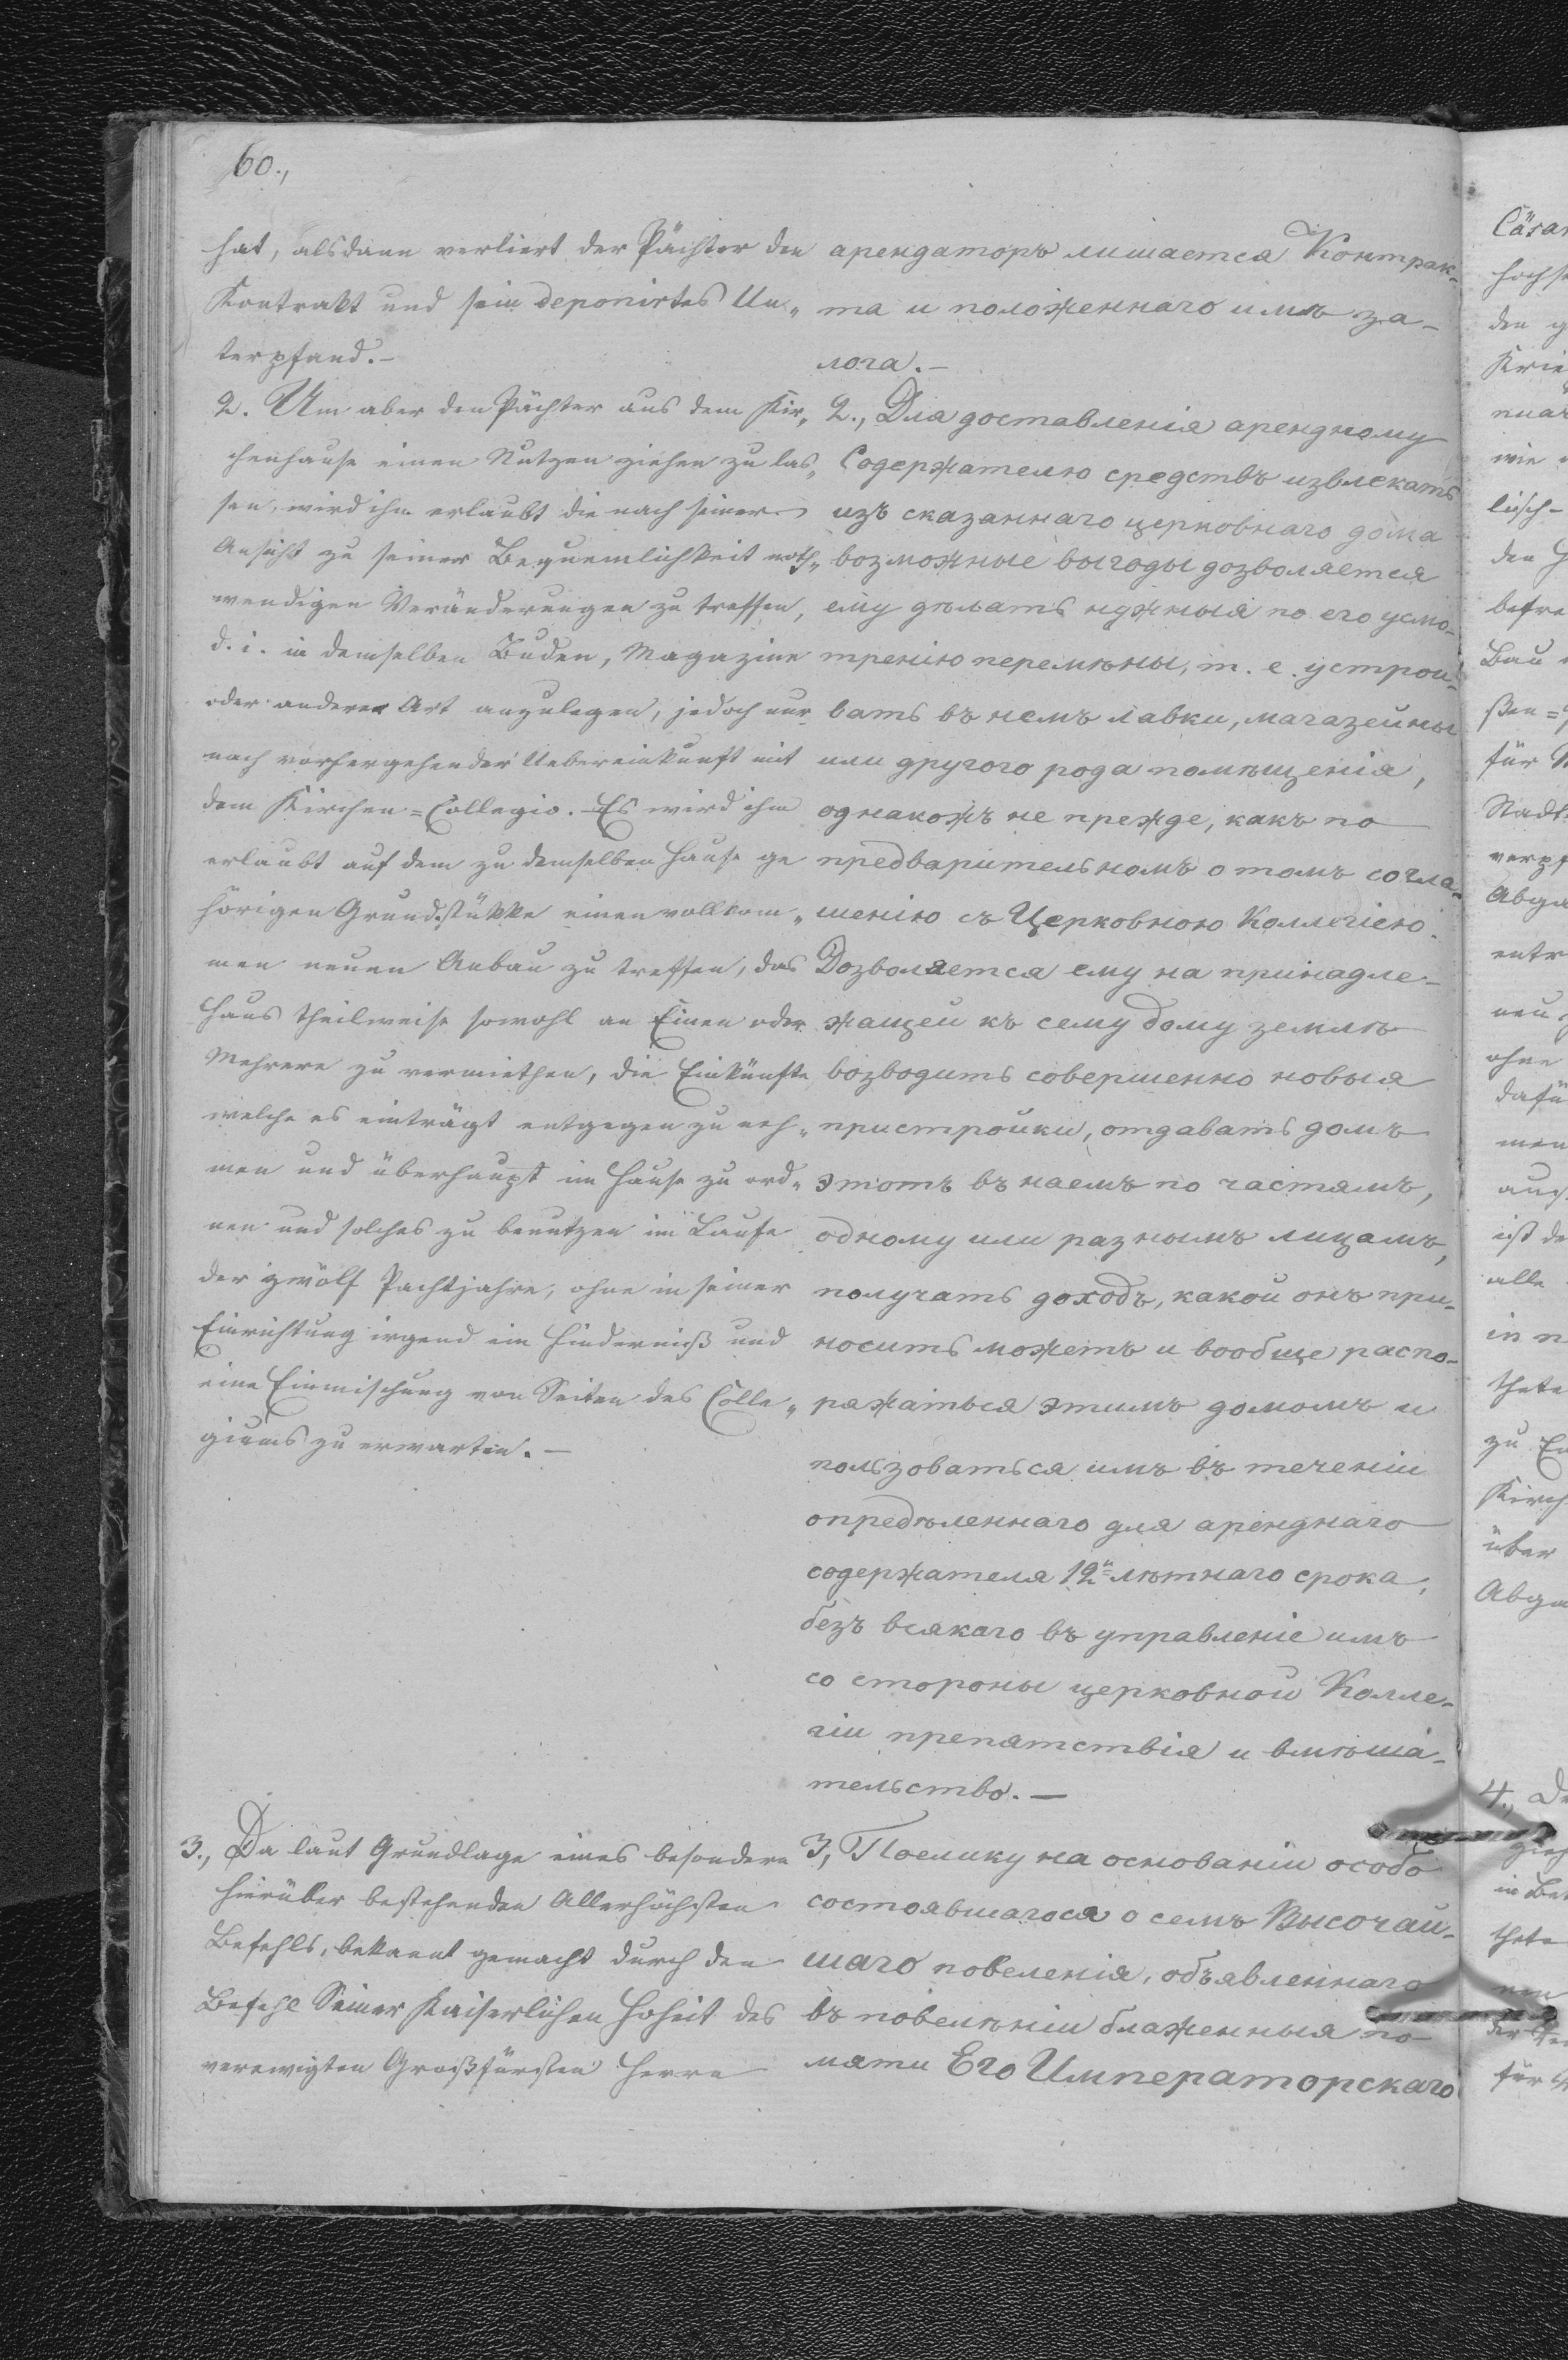 60.,
hat, alsdann verliert der Pächter den
Kontrakt und sein deponirtes Un„
terpfand.–
2. Um aber den Pächter aus dem Kir„
chenhause einen Nutzen ziehen zu las„
sen, wird ihm erlaubt die nach seiner
Ansicht zu seiner Bequemlichkeit noth„
wendigen Veränderungen zu treffen,
d. i. in demselben Buden, Magazine
oder anderer Art anzulegen, jedoch nur
nach vorhergehender Uebereinkunft mit
dem Kirchen=Collegio. Es wird ihm
erlaubt auf dem zu demselben Hause ge
hörigen Grundstükke einen vollkom„
men neuen Anbau zu treffen, das
Haus theilweise sowohl an Einen oder
Mehrere zu vermiethen, die Einkünfte
welche es einträgt entgegen zu neh„
men und überhaupt im Hause zu ord„
nen und solches zu benutzen im Laufe
der zwölf Pachtjahre, ohne in seiner
Einrichtung irgend ein Hinderniß und
eine Einmischung von Seiten des Colle„
giums zu erwarten.–
3., Da laut Grundlage eines besondern
hierüber bestehenden Allerhöchsten
Befehls, bekannt gemacht durch den
Befehl Seiner Kaiserlichen Hoheit des
verewigten Großfürsten Herrn
арендаторъ лишается Контрак-
та и положеннаго имъ за-
лога.–
2., Для доставленія арендному
Содержателю средствъ извлекать
изъ сказаннаго церковнаго дома
возможные выгоды дозволяется
ему дѣлать нужныя по его усмо-
тренію перемѣны, т. е. устрои-
вать въ немъ лавки, магазейны
или другого рода помѣщенія,
однакожъ не прежде, какъ по
предварительномъ о томъ согла-
шенію съ Церковною Коллегіею.
Дозволяется ему на принадле-
жащей къ сему дому землѣ
возводить совершенно новыя
пристройки, отдавать домъ
этотъ въ наемъ по частямъ,
одному или разнымъ лицамъ,
получать доходъ, какой онъ при-
носить можетъ и вообще распо-
ряжаться этимъ домомъ и
пользоваться имъ въ теченіи
опредѣленнаго для аренднаго
содержателя 12и=лѣтнаго срока,
безъ всякаго въ управленіе имъ
со стороны церковной Колле-
гіи препятствія и вмѣша-
тельство.–
3, Поелику на основаніи особо
состоявшагося о семъ Высочай-
шаго повеленія, объявленнаго
въ повелѣніи блаженныя па-
мяти Его Императорскаго
Cäsar
den
wie
lisch-
den
Bau
für
Stadt
verpf
entr
neu
ohne
dafü
men
auch
ist de
alle
in
thete
zu
Kirch
über
4., De
thete
für